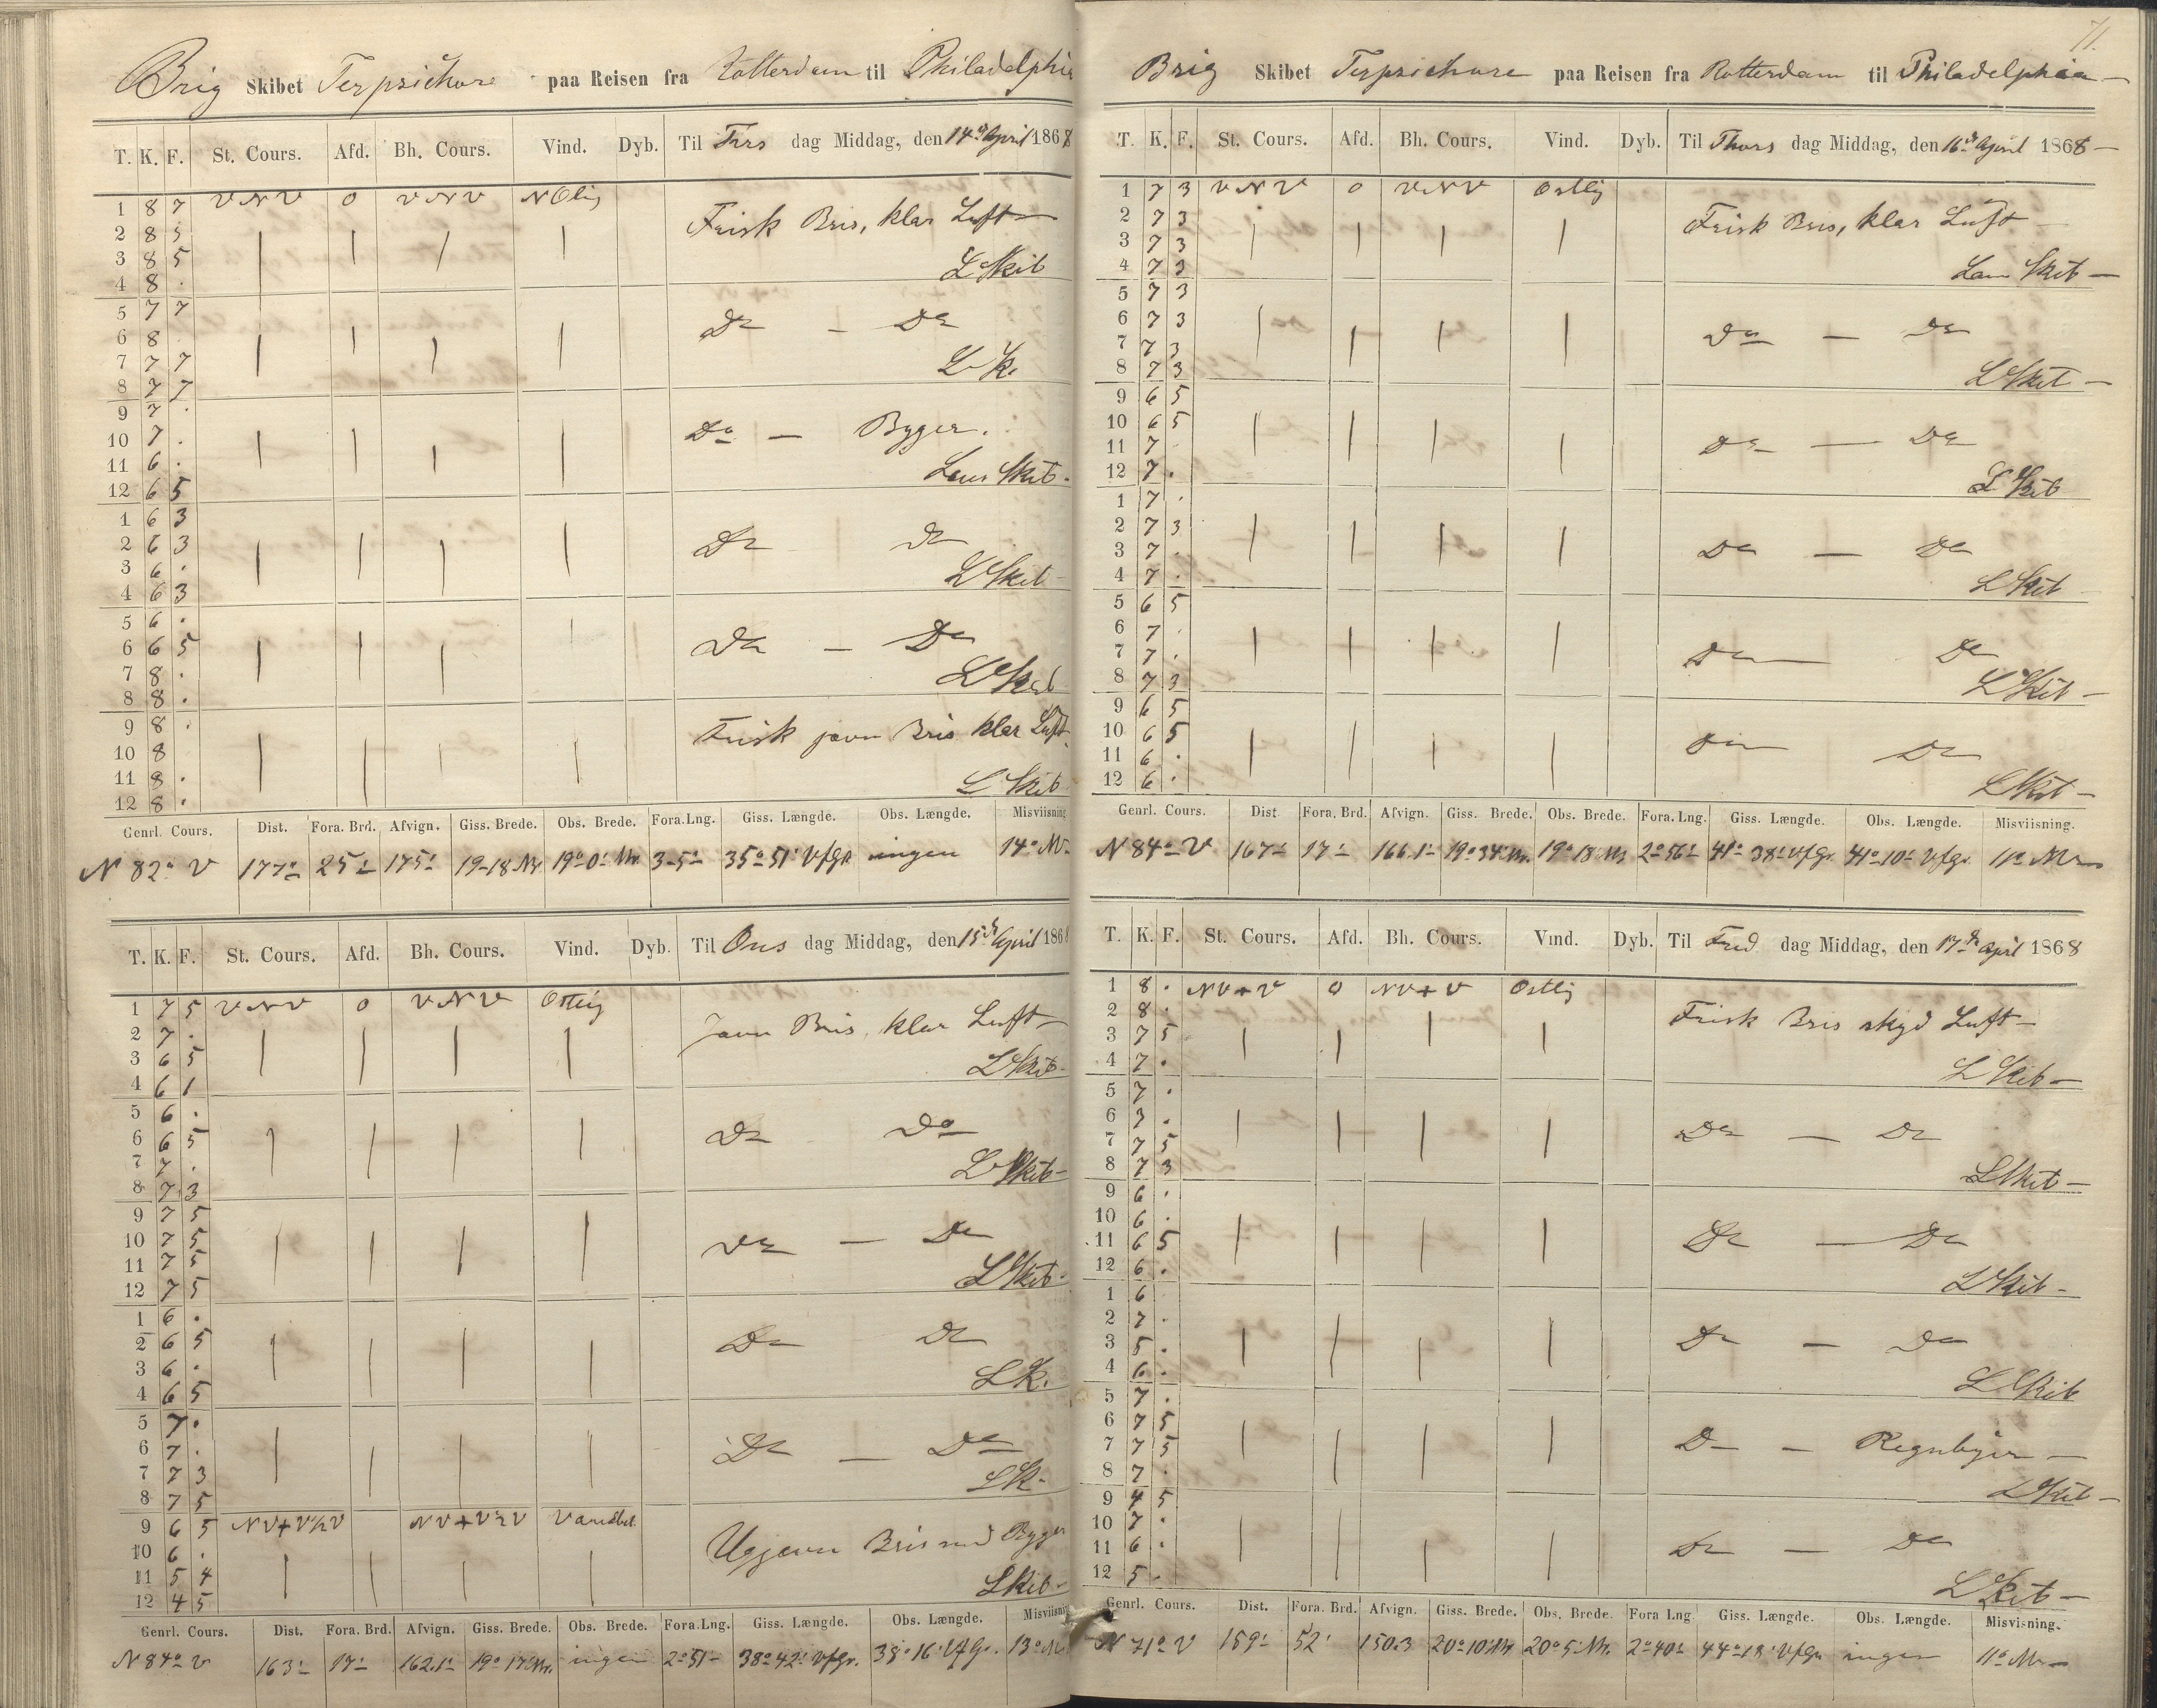 Brig Skibet Terpsichore paa Reisen fra Rotterdam til Philadelphia
T. K. F. St. Cours. Afd. Bh. Cours. Vind. Dyb. Til Tirs dag Middag, den 14de April 1868
1 8 7 VNV 0 VNV NOlig
2 8 5 Frisk Bris, klar Luft
3 8 5
4 8 . L Skib
5 7 7
6 8 Do - Do
7 7 7
8 7 7 L Sk.
9 7 .
10 7 . Do - Byger.
11 6 .
12 6 5 Lens Skib.
1 6 3
2 6 3 Do Do
3 6 .
4 6 3 L Skib
5 6 .
6 6 5 Do - Do
7 8 .
8 8 . L Skib
9 8 . Frisk jævn Bris klar Luft
10 8
11 8 .
12 8 . L Skib
Genrl. Cours. Dist. Fora. Brd. Afvign. Giss. Brede. Obs. Brede. Fora. Lng. Giss. Længde. Obs. Længde. Misviisning
N 82° V 177' 25' 175' 19-18 Nr. 19° 0' Nr. 3-5' 35° 51' Vfgr. ingen 14° Nv.
T. K. F. St. Cours. Afd. Bh. Cours. Vind. Dyb. Til Ons dag Middag, den 15de April 1868
1 7 5 VNV 0 VNV Ostlig
2 7 . Jævn Bris, klar Luft
3 6 5
4 6 1 L Skib
5 6 .
6 6 5 Do Do
7 7 .
8 7 3 L Skib
9 7 5
10 7 5 Do - Do
11 7 5
12 7 5 L Skib
1 6 .
2 6 5 Do Do
3 6 .
4 6 5 L Sk.
5 7 .
6 7 . Do - Do
7 7 3
8 7 5 L Sk.
9 6 5 NV+V½V NV+V½V Variabel
10 6 . Ujævn Bris med Byger
11 5 4
12 4 5 L Skib
Genrl. Cours. Dist. Fora. Brd. Afvign. Giss. Brede. Obs. Brede. Fora. Lng. Giss. Længde. Obs. Længde. Misviisning
N 84° V 163' 17' 162.1' 19° 17' Nr. ingen 2° 51' 38° 42' Vfgr. 38° 16' Vfgr. 13° Nv
71.
Brig Skibet Terpsichore paa Reisen fra Rotterdam til Philadelphia
T. K. F. St. Cours. Afd. Bh. Cours. Vind. Dyb. Til Thors dag Middag, den 16de April 1868
1 7 3 VNV 0 VNV Ostlig
2 7 3 Frisk Bris, klar Luft
3 7 3
4 7 3 Læns Skib
5 7 3
6 7 3 Do - Do
7 7 3
8 7 3 L Skib
9 6 5
10 6 5 Do - Do
11 7
12 7 . L Skib
1 7 .
2 7 3 Do - Do
3 7 .
4 7 . L Skib
5 6 5
6 7 . Do Do
7 7 .
8 7 3 L Skib
9 6 5
10 6 5 Do Do
11 6 .
12 6 . L Skib
Genrl. Cours. Dist Fora. Brd. Afvign. Giss. Brede. Obs. Brede. Fora. Lng. Giss. Længde. Obs. Længde. Misviisning.
N 84° V 167' 17' 166.1' 19° 34' Nr. 19° 18' Nr 2° 56' 41° 38' Vfgr. 41° 10' Vfgr. 11° Nv
T. K. F. St. Cours. Afd. Bh. Cours. Vind. Dyb. Til Fred dag Middag, den 17de April 1868
1 8 . NV+V 0 NV+V Ostlig
2 8 . Frisk Bris skyd Luft
3 7 5
4 7 . L Skib
5 7 .
6 3 . Do - Do
7 7 5
8 7 3 L Skib
9 6 .
10 6 . Do - Do
11 6 5
12 6 . L Skib
1 6
2 7 . Do - Do
3 5 .
4 6 . L Skib
5 7 .
6 7 5 Do - Regnbyer
7 7 5
8 7 . L Skib
9 4 5
10 7 . Do - Do
11 6 .
12 5 . L Skib
Genrl. Cours. Dist. Fora. Brd. Afvign. Giss. Brede. Obs. Brede. Fora Lng. Giss. Længde. Obs. Længde. Misvisning.
N 71° V 159' 52' 150.3 20° 10' Nr 20° 5' Nr. 2° 40' 44° 18' Vfgr ingen 11° Nv